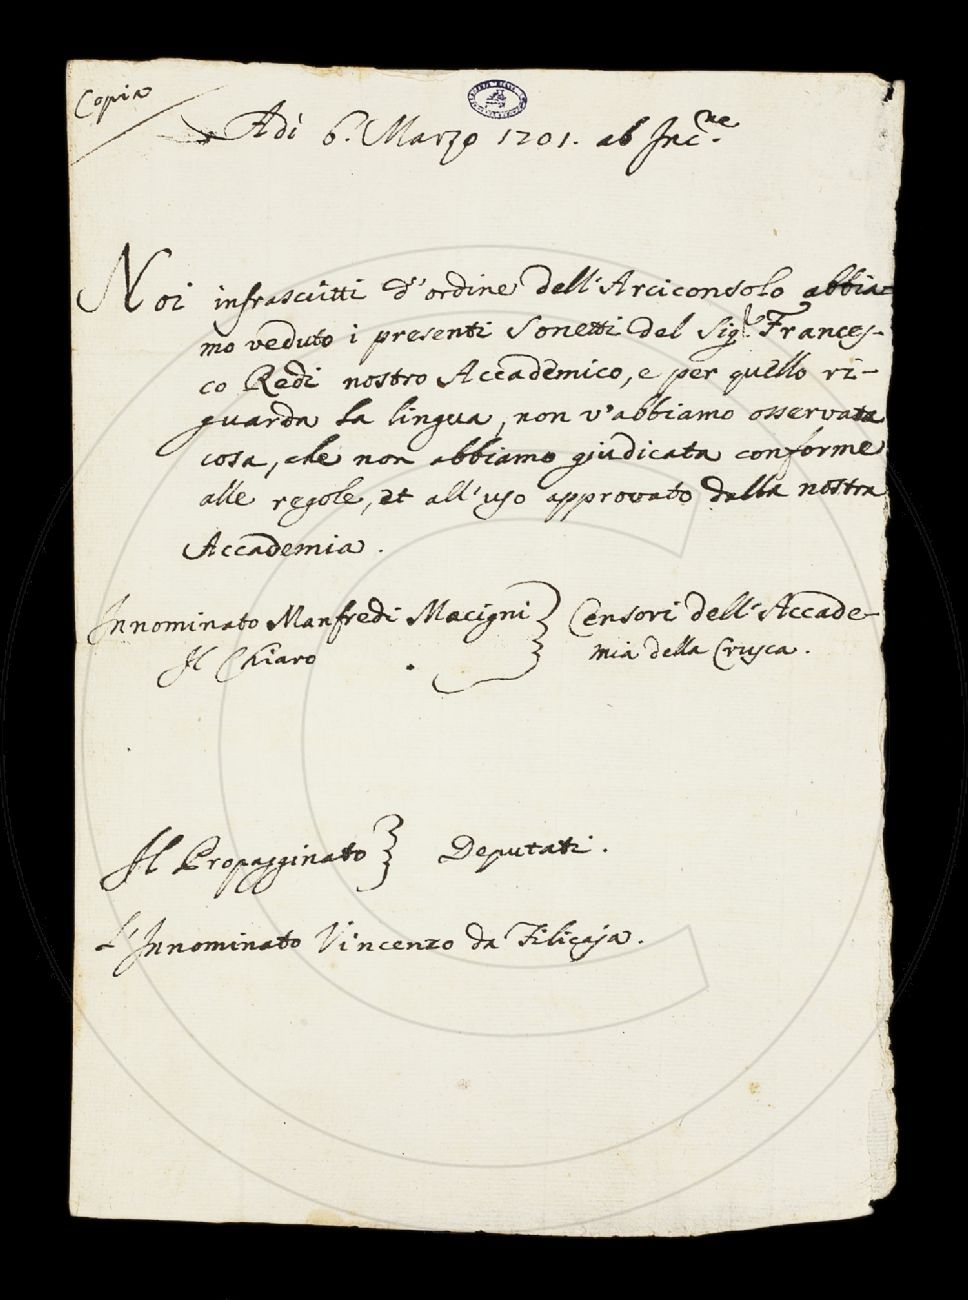 Copia
Adi 6. Marzo 1701. ab Inc.ne
Noi infrascritti d'ordine dell'Arciconsolo abbia=
mo veduto i presenti Sonetti del Sig.r Frances-
co Redi nostro Accademico, e per quello ri-
guarda la lingua, non v'abbiamo osservata
cosa, che non abbiamo giudicata conforme
alle regole, et all'uso approvato dalla nostra
Accademia.
Innominato Manfredi Macigni } Censori dell'Accade-
Il Chiaro } mia della Crusca.
Il Propagginato } Deputati.
L'Innominato Vincenzo da Filicaja.